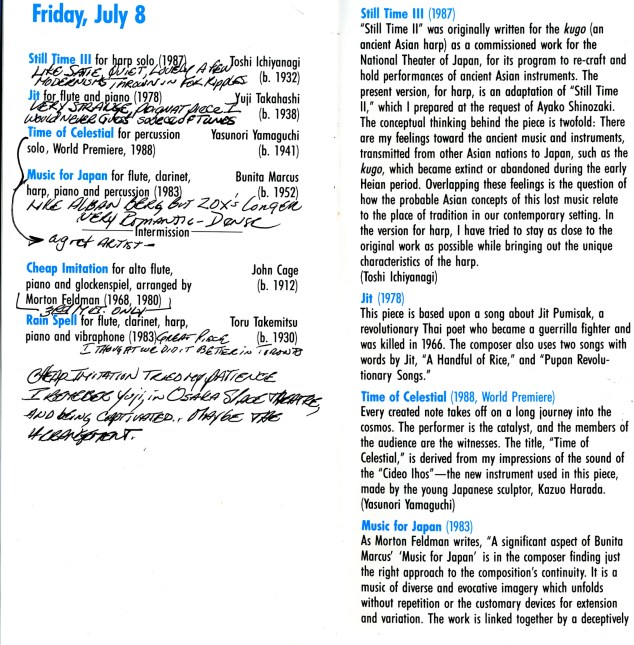 Friday, July 8
Still Time III for harp solo (1987) Toshi Ichiyanagi
LIKE SATIE, QUIET, LOVELY A FEW (b. 1932)
MODERNISMS THROWN IN FOR RIPPLES
Jit for flute and piano (1978) Yuji Takahashi
VERY STRANGE, PIECE I (b. 1938)
WOULD NEVER GUESS SOURCE OF TUNES
Time of Celestial for percussion Yasunori Yamaguchi
solo, World Premiere, 1988) (b. 1941)
Music for Japan for flute, clarinet, Bunita Marcus
harp, piano and percussion (1983) (b. 1952)
LIKE ALBAN BERG BUT 20X's LONGER
VERY ROMANTIC - DENSE
Intermission
ag of ARTIST -
Cheap Imitation for alto flute, John Cage
piano and glockenspiel, arranged by (b. 1912)
Morton Feldman (1968, 1980)
3RD MVT. ONLY
Rain Spell for flute, clarinet, harp, Toru Takemitsu
piano and vibraphone (1983) GREAT PIECE (b. 1930)
I THOUGHT WE DID IT BETTER IN TORONTO
CHEAP IMITATION TRIED MY PATIENCE
I REMEMBER YUJI, IN OSAKA SPACE THEATRE,
AND BEING CAPTIVATED. MAYBE THE
ARRANGEMENT.
Still Time III (1987)
"Still Time II" was originally written for the kugo (an
ancient Asian harp) as a commissioned work for the
National Theater of Japan, for its program to re-craft and
hold performances of ancient Asian instruments. The
present version, for harp, is an adaptation of "Still Time
II," which I prepared at the request of Ayako Shinozaki.
The conceptual thinking behind the piece is twofold: There
are my feelings toward the ancient music and instruments,
transmitted from other Asian nations to Japan, such as the
kugo, which became extinct or abandoned during the early
Heian period. Overlapping these feelings is the question of
how the probable Asian concepts of this lost music relate
to the place of tradition in our contemporary setting. In
the version for harp, I have tried to stay as close to the
original work as possible while bringing out the unique
characteristics of the harp.
(Toshi Ichiyanagi)
Jit (1978)
This piece is based upon a song about Jit Pumisak, a
revolutionary Thai poet who became a guerrilla fighter and
was killed in 1966. The composer also uses two songs with
words by Jit, "A Handful of Rice," and "Pupan Revolu-
tionary Songs."
Time of Celestial (1988, World Premiere)
Every created note takes off on a long journey into the
cosmos. The performer is the catalyst, and the members of
the audience are the witnesses. The title, "Time of
Celestial," is derived from my impressions of the sound of
the "Cideo Ihos"—the new instrument used in this piece,
made by the young Japanese sculptor, Kazuo Harada.
(Yasunori Yamaguchi)
Music for Japan (1983)
As Morton Feldman writes, "A significant aspect of Bunita
Marcus' 'Music for Japan' is in the composer finding just
the right approach to the composition's continuity. It is a
music of diverse and evocative imagery which unfolds
without repetition or the customary devices for extension
and variation. The work is linked together by a deceptively